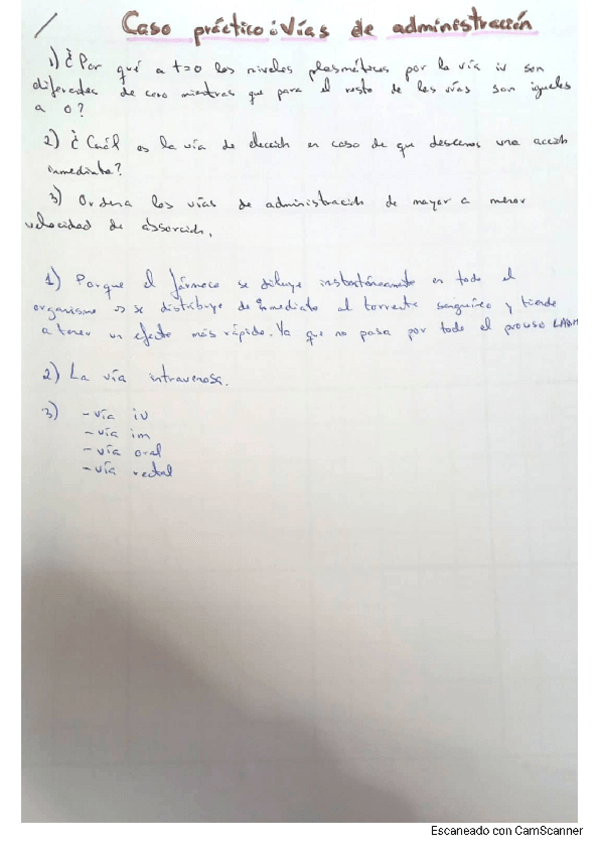 Caso práctico: Vías de administración
1) ¿Por qué a t=0 los niveles plasmáticos por la vía iv son
diferentes de cero mientras que para el resto de las vías son iguales
a 0?
2) ¿Cuál es la vía de elección en caso de que deseemos una acción
inmediata?
3) Ordena las vías de administración de mayor a menor
velocidad de absorción.
1) Porque el fármaco se diluye instantáneamente en todo el
organismo => se distribuye de inmediato al torrente sanguíneo y tiende
a tener un efecto más rápido. Ya que no pasa por todo el proceso LADM
2) La vía intravenosa.
3) - vía iv
- vía im
- vía oral
- vía rectal
Escaneado con CamScanner